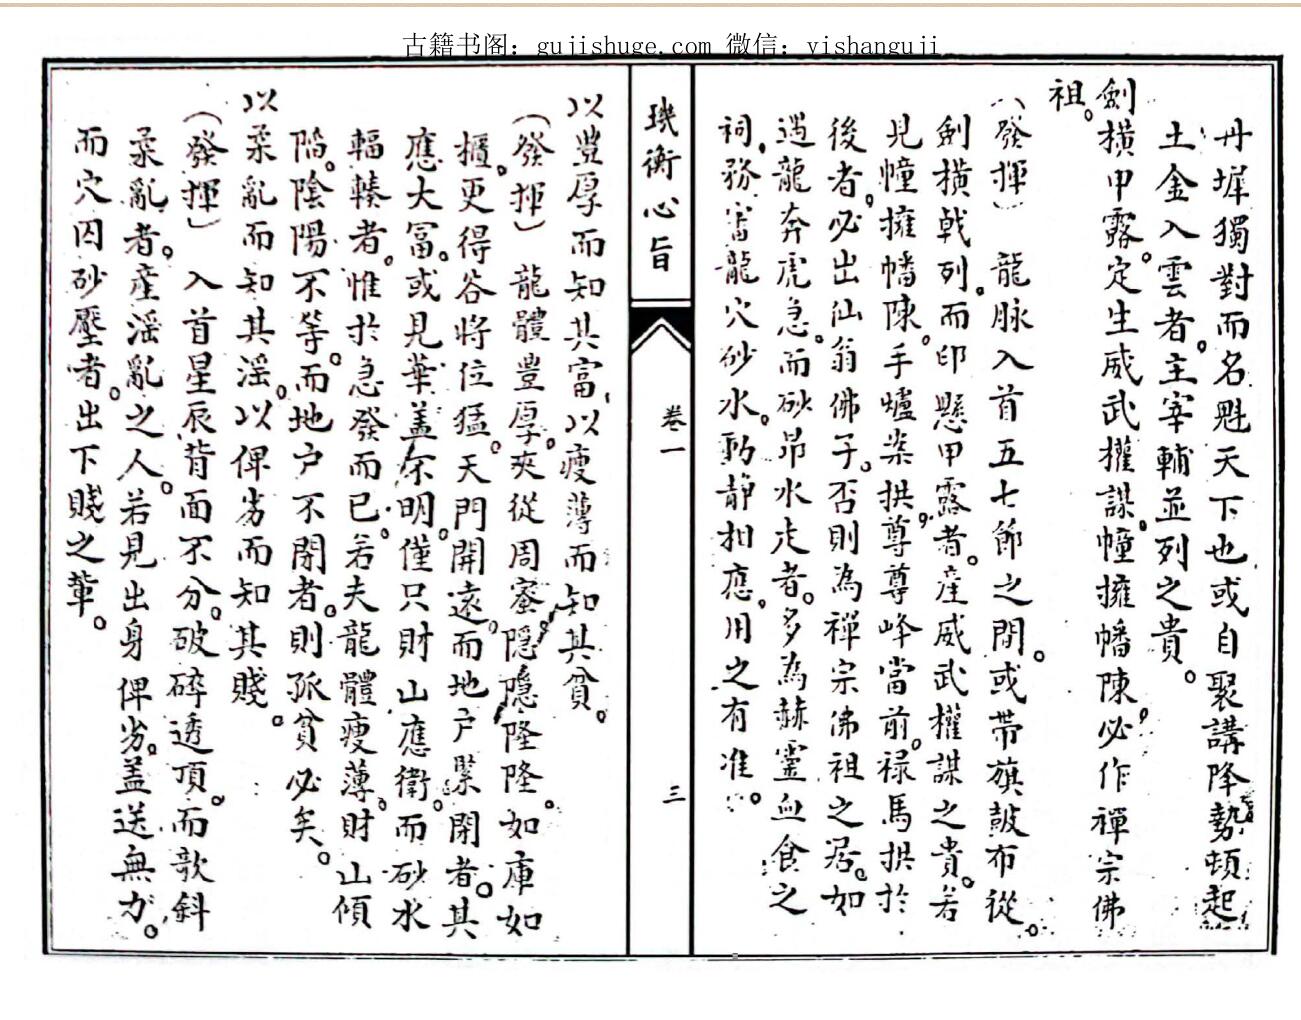 古籍书阁：gujishuge.com 微信：yishanguji
丹墀獨對而名魁天下也或自聚講降勢頓起
土金入雲者。主宰輔並列之貴。
劍橫甲露。定生威武權謀。幢擁幡陳。必作禪宗佛
祖。
（發揮） 龍脉入首五七節之間。或帶旗鼓布從。
劍橫戟列。而印懸甲露者。產威武權謀之貴。若
見幢擁幡陳。手爐案拱。尊尊峰當前。祿馬拱於
後者。必出仙翁佛子。否則為禪宗佛祖之居。如
遇龍奔虎急。而砂昂水走者。多為赫靈血食之
祠。務審龍穴砂水。動静相應。用之有准。
璣衡心旨
卷一
三
以豐厚而知其富。以瘦薄而知其貧。
（發揮） 龍體豐厚。夾從周密。隱隱隆隆。如庫如
櫃。更得谷將位猛。天門開遠。而地户緊閉者。其
應大富。或見華盖不明。僅只財山應衛。而砂水
輻輳者。惟於急發而已。若夫龍體瘦薄。財山傾
陷。陰陽不等。而地户不閉者。則孤貧必矣。
以柔亂而知其淫。以俾劣而知其賤。
（發揮） 入首星辰背面不分。破碎透頂。而欹斜
柔亂者。產淫亂之人。若見出身俾劣。盖送無力。
而穴囚砂壓者。出下賤之輩。